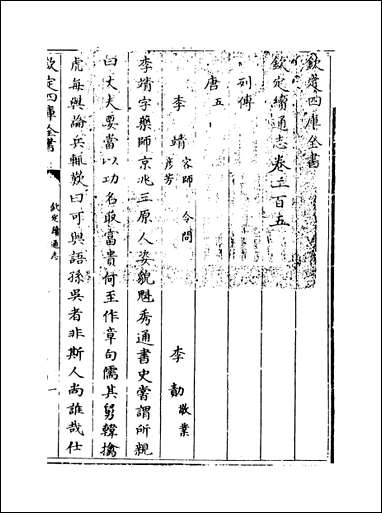 欽定四庫全書
欽定續通志卷二百五
列傳
唐五
李靖 客師 令問 彥芳
李勣 敬業
李靖字藥師京兆三原人姿貌魁秀通書史嘗謂所親
曰大夫要當以功名取富貴何至作章句儒其舅韓擒
虎每與論兵輒歎曰可與語孫吳者非斯人尚誰哉仕
欽定四庫全書
欽定續通志
一